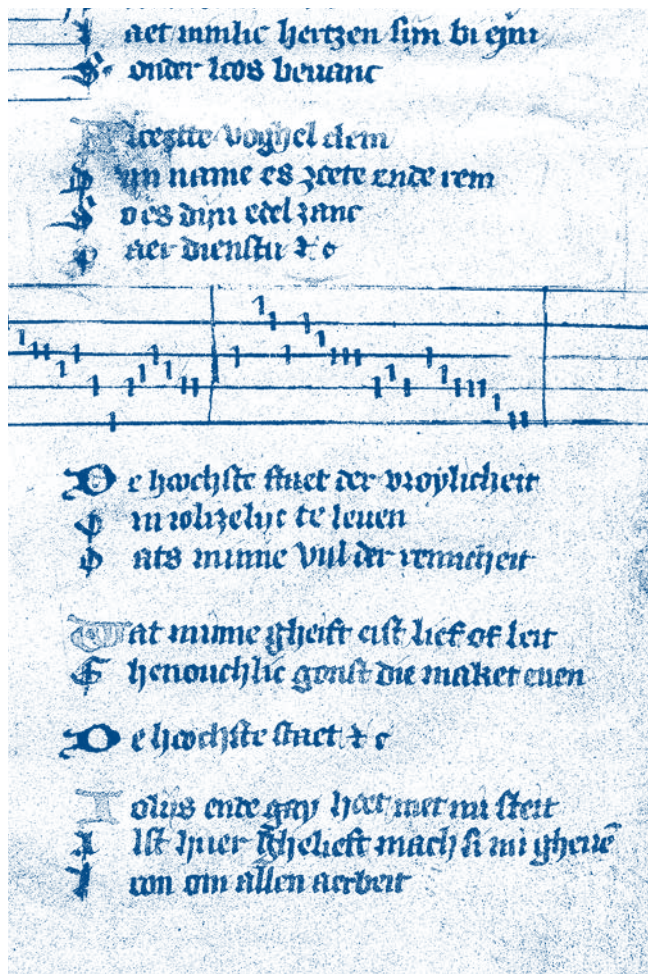 aet minlic hertzen
S onder loos beuanc
A loeette voghel clein
D ijn name es zoete ende rein
S o es dijn edel zanc
D aer dienstu &c
D e hoochste staet der vroylicheit
te leuen
D ats minne vul der reinicheit
W at minne gheift eist lief of leit
G henouchlic gonst die maket euen
D e hoochste staet &c
I olijs ende gay hoet met mi steit
I ist huer ghelieft mach si mi gheuē
L oon om allen aerbeit